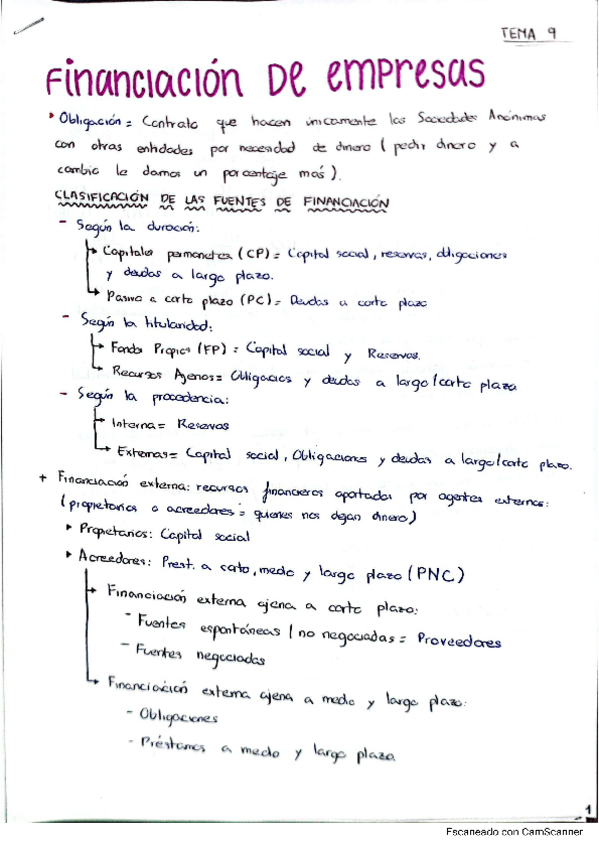 TEMA 9
Financiación De empresas
• Obligación = Contrato que hacen únicamente las Sociedades Anónimas
con otras entidades por necesidad de dinero (pedir dinero y a
cambio le damos un porcentaje más).
CLASIFICACIÓN DE LAS FUENTES DE FINANCIACIÓN
- Según la duración:
↳ Capitales permanentes (CP) = Capital social, reservas, obligaciones
y deudas a largo plazo.
↳ Pasivo a corto plazo (PC) = Deudas a corto plazo
- Según la titularidad:
↳ Fondos Propios (FP) = Capital social y Reservas.
↳ Recursos Ajenos = Obligacios y deudas a largo/corto plazo
- Según la procedencia:
↳ Interna = Reservas
↳ Externas = Capital social, Obligaciones y deudas a largo/corto plazo.
+ Financiación externa: recursos financieros aportados por agentes externos:
(propietarios o acreedores = quienes nos dejan dinero)
▸ Propietarios: Capital social
▸ Acreedores: Prest. a corto, medio y largo plazo (PNC)
↳ Financiación externa ajena a corto plazo:
- Fuentes espontáneas / no negociadas = Proveedores
- Fuentes negociadas
↳ Financiación externa ajena a medio y largo plazo:
- Obligaciones
- Préstamos a medio y largo plazo
1
Escaneado con CamScanner